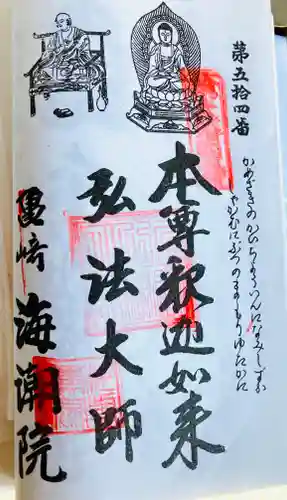 第五拾四番
かめざきの かひてうゐんに なみしづか
しやかむにぶつの まもりゆたかに
本尊釈迦如来
弘法大師
亀崎 海潮院